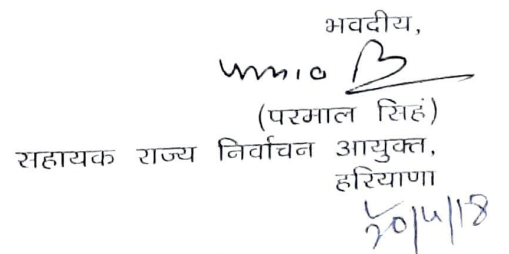 भवदीय,
(परमाल सिहं)
सहायक राज्य निर्वाचन आयुक्त,
हरियाणा
20/4/18